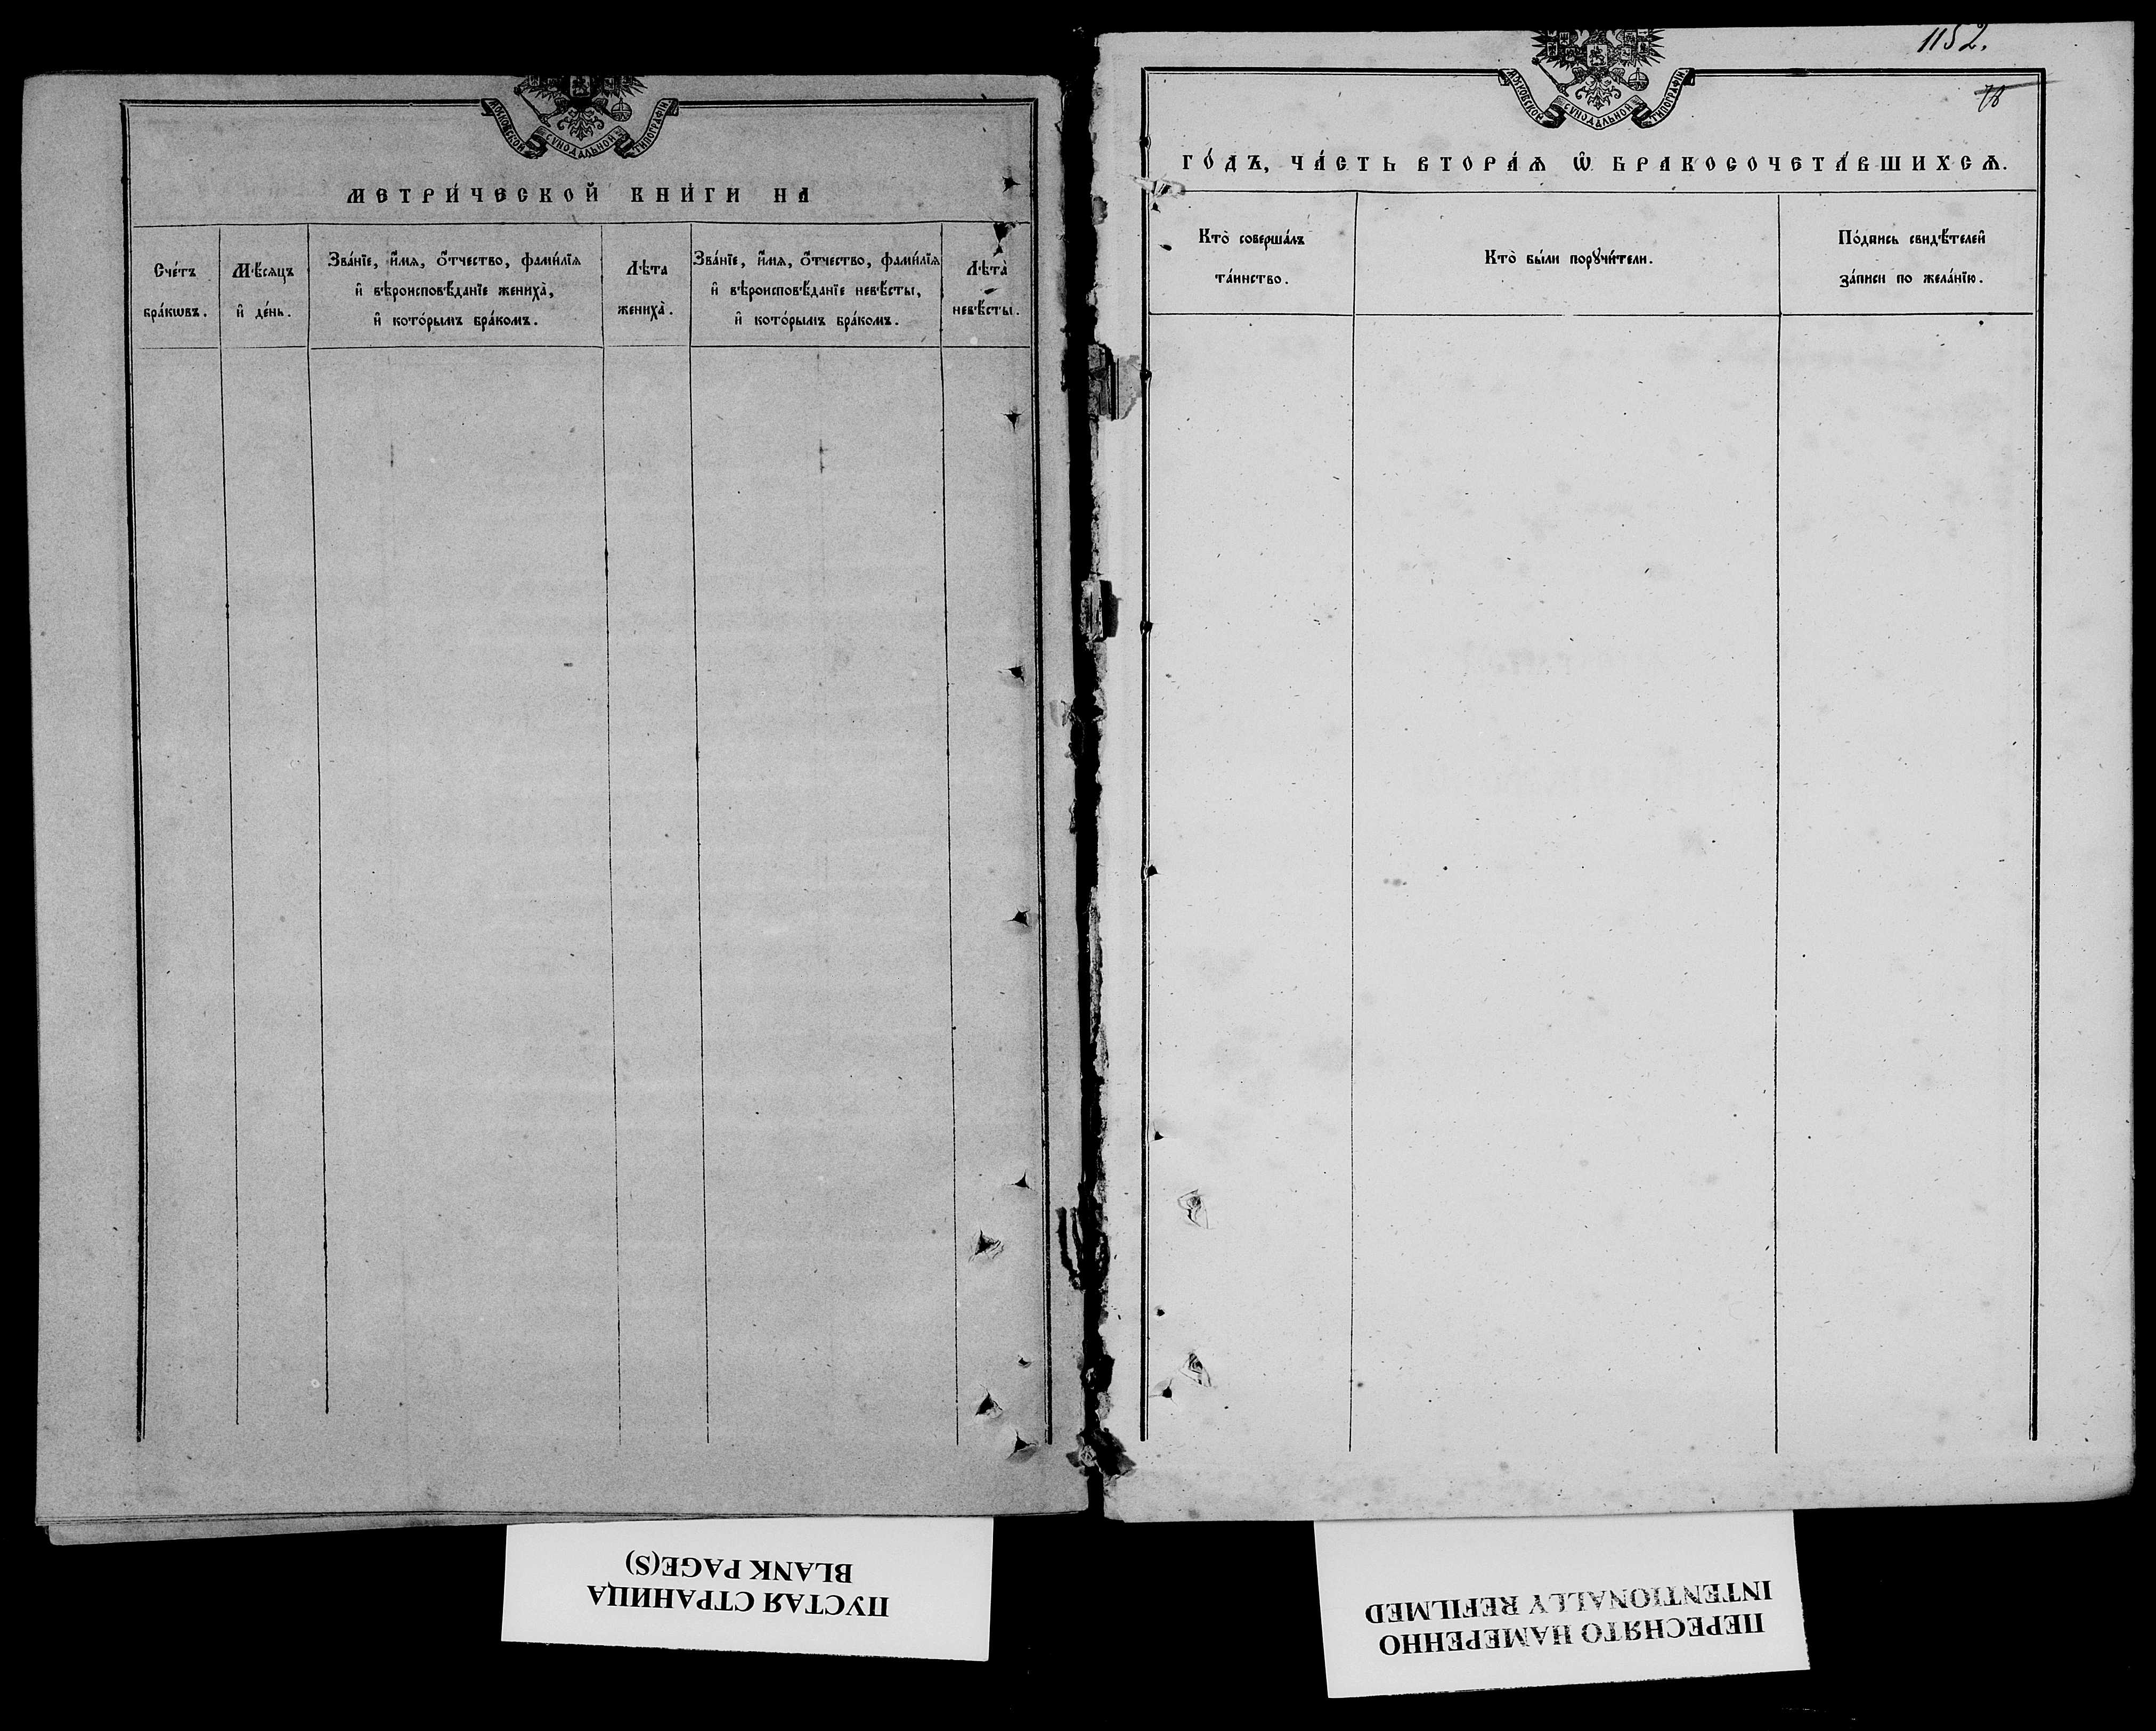 МОСКОВСКОЙ СѴНОДАЛЬНОЙ ТИПОГРАФІИ
МЕТРИ́ЧЕСКОЙ КНИ́ГИ НА
Сче́тъ
бра́кѡвъ.
Мѣ́сяцъ
и҆ де́нь.
Зва́нїе, и҆́мѧ, ѻ҆́тчество, фами́лїѧ
и҆ вѣроисповѣ́данїе жениха̀,
и҆ кото́рымъ бра́комъ.
Лѣ́та
жениха̀.
Зва́нїе, и҆́мѧ, ѻ҆́тчество, фами́лїѧ
и҆ вѣроисповѣ́данїе невѣ́сты,
и҆ кото́рымъ бра́комъ.
Лѣта̀
невѣ́сты.
ПУСТАЯ СТРАНИЦА
BLANK PAGE(S)
1152.
МОСКОВСКОЙ СѴНОДАЛЬНОЙ ТИПОГРАФІИ
ГО́ДЪ, ЧА́СТЬ ВТОРА́Ѧ Ѡ҆ БРАКОСОЧЕТА́ВШИХСѦ.
Кто̀ соверша́лъ
та́инство.
Кто̀ бы́ли порꙋчи́тели.
По́дпись свидѣ́телей
за́писи по жела́нїю.
ПЕРЕСНЯТО НАМЕРЕННО
INTENTIONALLY REFILMED